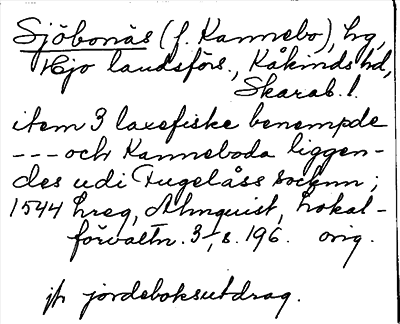 Sjöbonäs (f. Kannebo), hg,
Hjo landsförs., Kåkinds hd,
Skarab. l.
item 3 laxefiske benempde
--- och Kanneboda liggen-
des udi Fugelåss socknn;
1544 hreg, Almquist, Lokal-
förvaltn. 3, s. 196. orig.
jfr jordeboksutdrag.